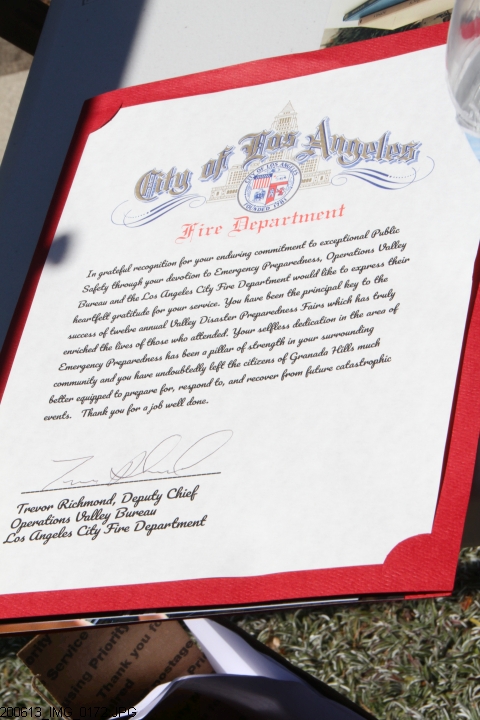 City of Los Angeles
CITY OF LOS ANGELES
FOUNDED 1781
Fire Department
In grateful recognition for your enduring commitment to exceptional Public
Safety through your devotion to Emergency Preparedness, Operations Valley
Bureau and the Los Angeles City Fire Department would like to express their
heartfelt gratitude for your service. You have been the principal key to the
success of twelve annual Valley Disaster Preparedness Fairs which has truly
enriched the lives of those who attended. Your selfless dedication in the area of
Emergency Preparedness has been a pillar of strength in your surrounding
community and you have undoubtedly left the citizens of Granada Hills much
better equipped to prepare for, respond to, and recover from future catastrophic
events. Thank you for a job well done.
Trevor Richmond, Deputy Chief
Operations Valley Bureau
Los Angeles City Fire Department
Service
Priority
Thank you
Postage
200613_IMG_0172.JPG